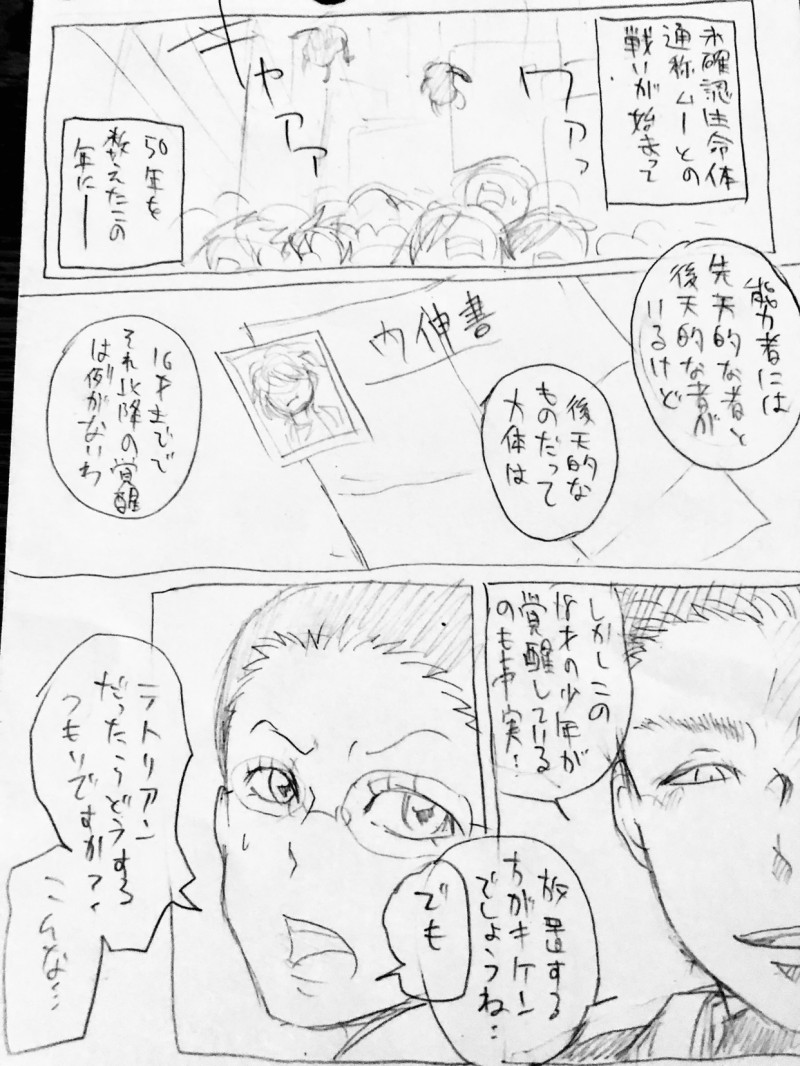 未確認生命体
通称ムーとの
戦いが始まって
ワアァッ
キャアアァ
50年を
数えたこの
年に――
能力者には
先天的な者と
後天的な者が
いるけど
内申書
後天的な
ものだって
大体は
16才までで
それ以降の覚醒
は例がないわ
しかしこの
18才の少年が
覚醒している
のも事実…
放置する
方がキケン
でしょうね…
でも
ラトリアン
だったらどうする
つもりですか?
こんな…